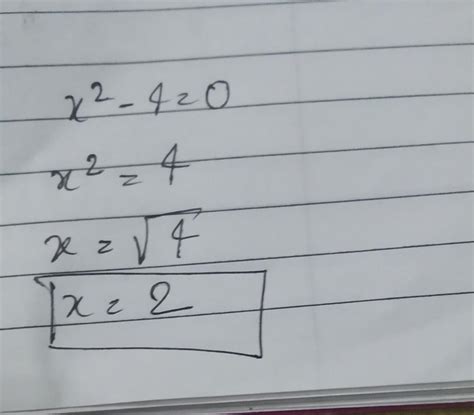 x² - 4 = 0
x² = 4
x = √4
x = 2